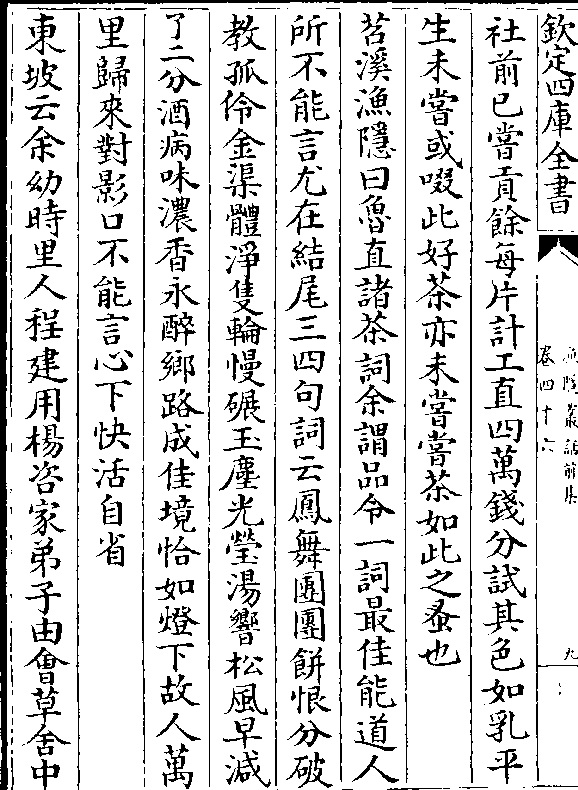 欽定四庫全書
漁隱叢話前集
卷四十六
九
社前已嘗貢餘每片計工直四萬錢分試其色如乳平
生未嘗或啜此好茶亦未嘗嘗茶如此之蚤也
苕溪漁隱曰魯直諸茶詞余謂品令一詞最佳能道人
所不能言尤在結尾三四句詞云鳳舞團團餅恨分破
教孤伶金渠體淨隻輪慢碾玉塵光瑩湯響松風早減
了二分酒病味濃香永醉鄉路成佳境恰如燈下故人萬
里歸來對影口不能言心下快活自省
東坡云余幼時里人程建用楊咨家弟子由會草舍中